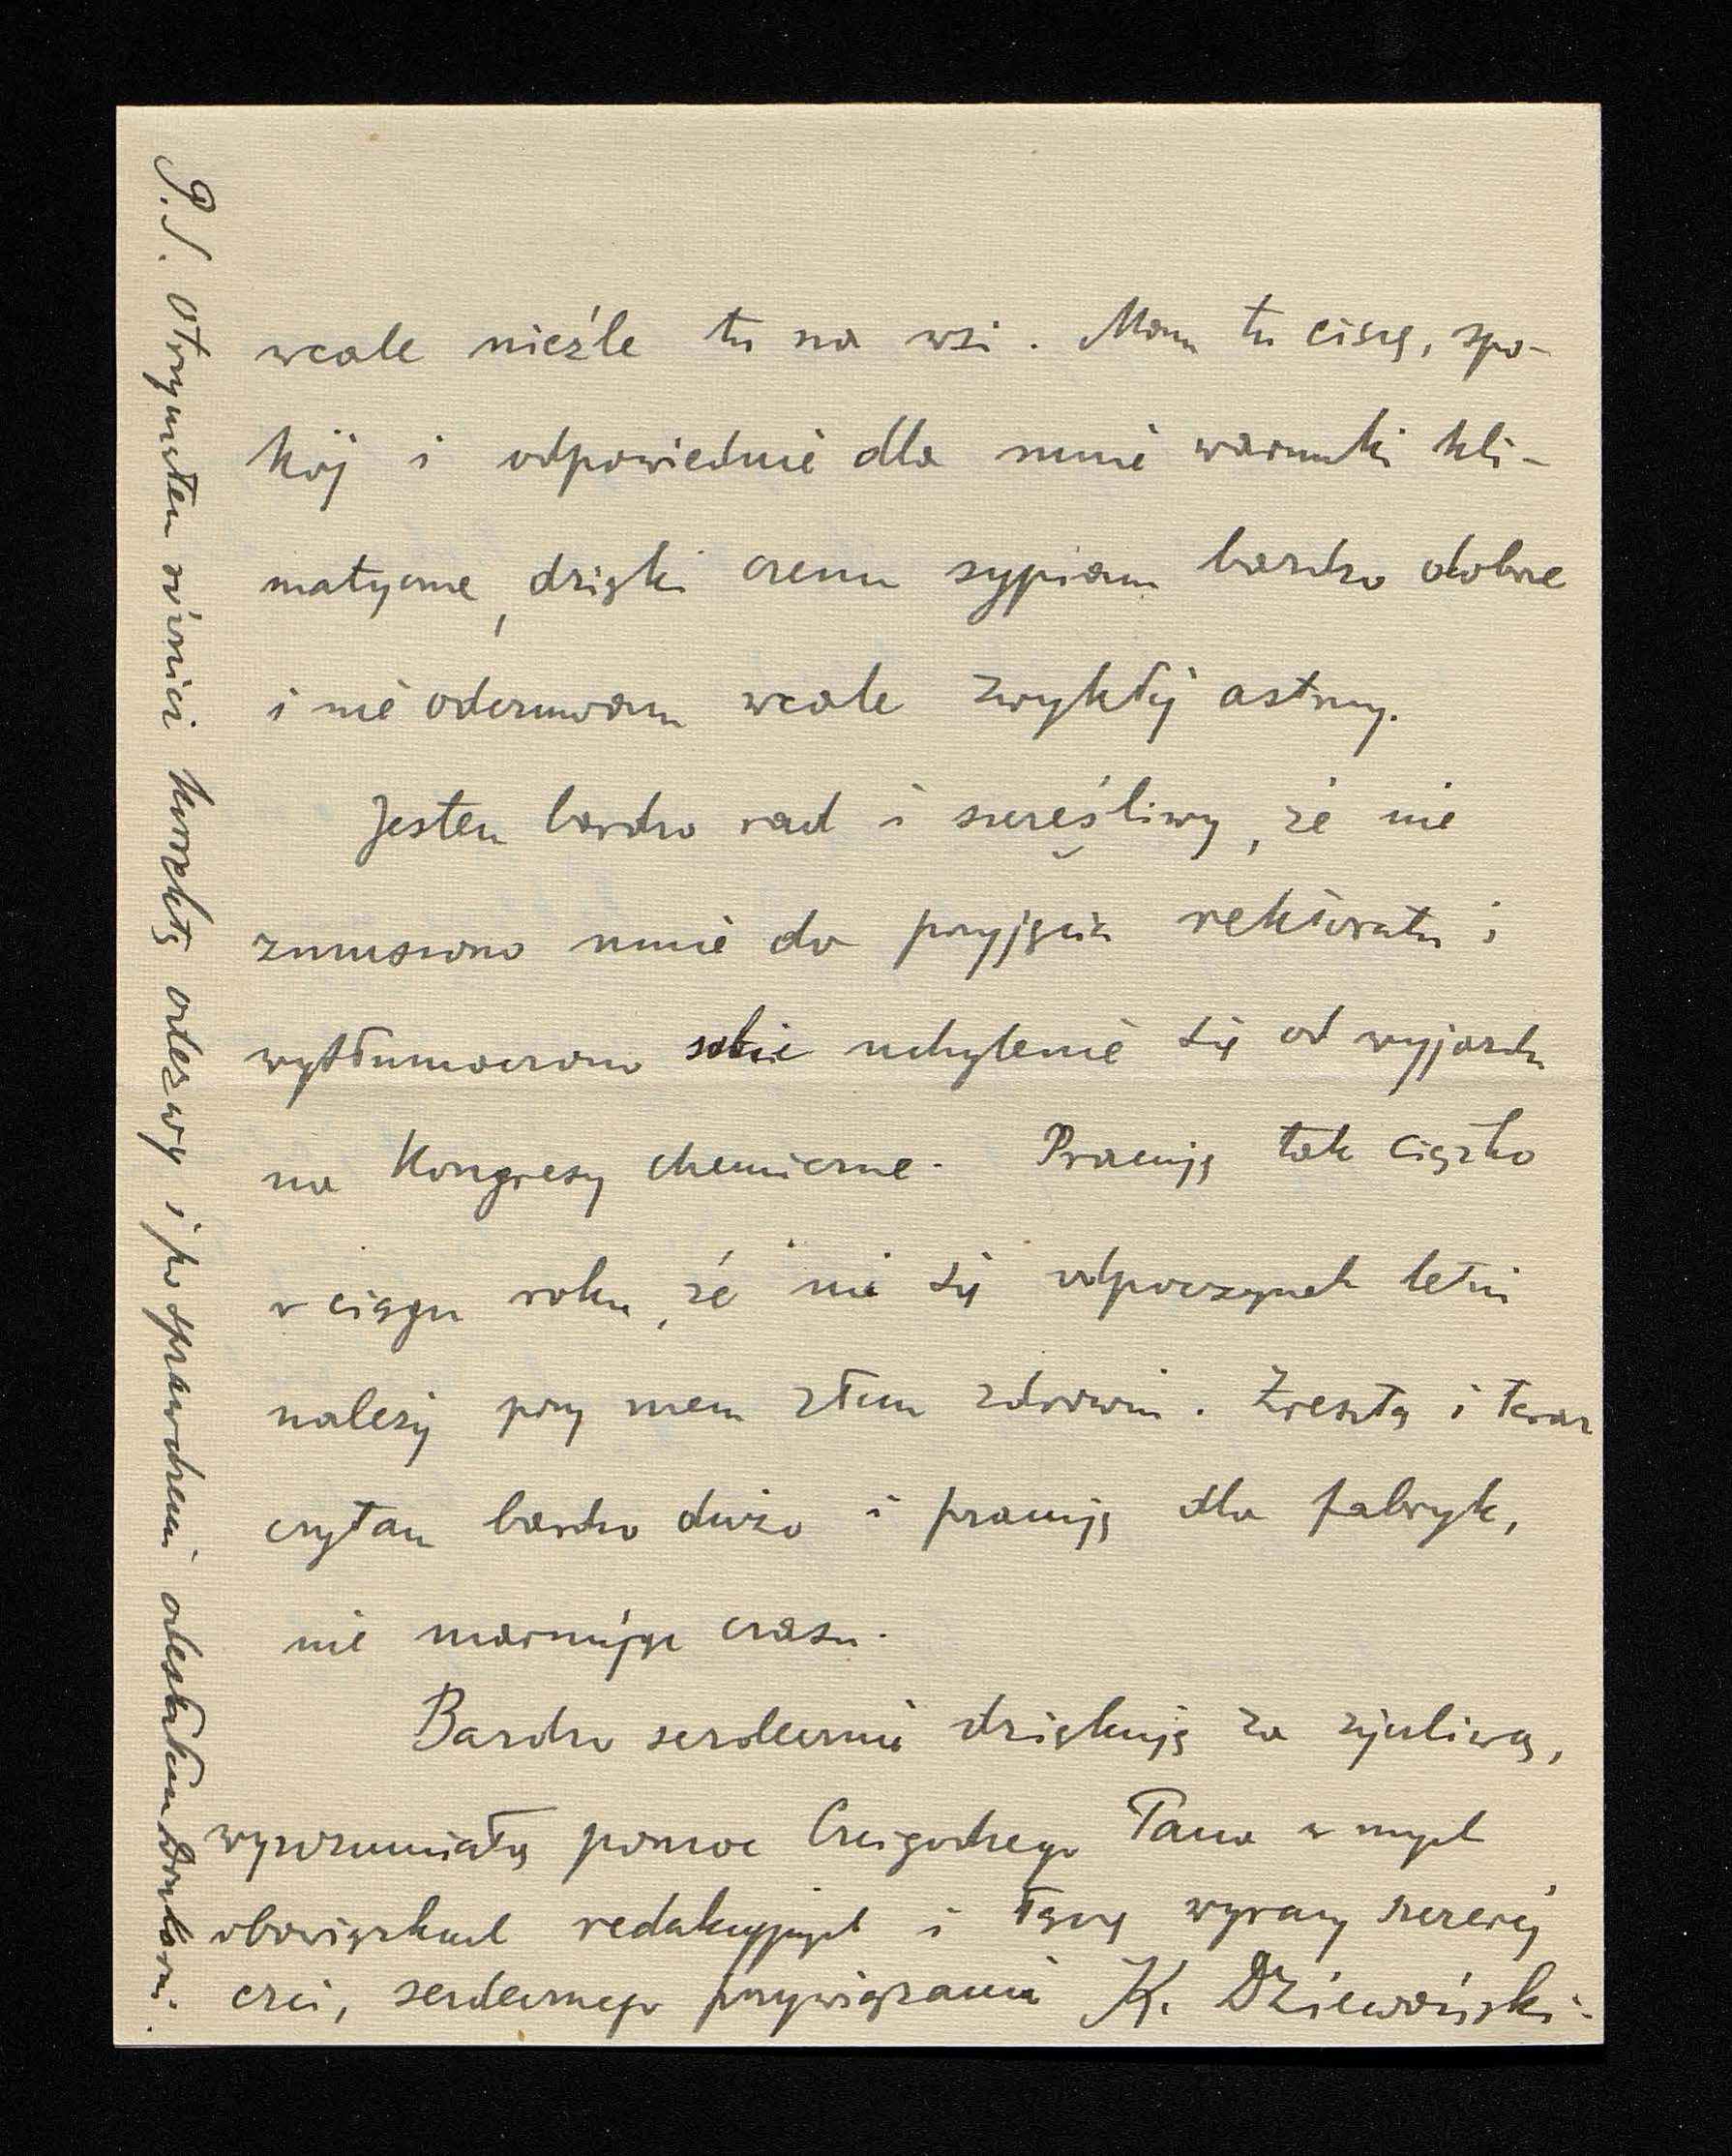 wcale nieźle tu na wsi. Mam tu ciszę, spo-
kój i odpowiednie dla mnie warunki kli-
matyczne, dzięki czemu sypiam bardzo dobrze
i nie odczuwam wcale zwykłej astmy.
Jestem bardzo rad i szczęśliwy, że nie
zmuszono mnie do przyjęcia rektoratu i
wytłumaczono sobie uchylenie się od wyjazdu
na Kongresy chemiczne. Pracuję tak ciężko
w ciągu roku, że mi się odpoczynek letni
należy przy mem złem zdrowiu. Zresztą i teraz
czytam bardzo dużo i pracuję dla fabryk,
nie marnując czasu.
Bardzo serdecznie dziękuję za życzliwą,
wyrozumiałą pomoc Czcigodnego Pana w mych
obowiązkach redakcyjnych i łączę wyrazy szczerej
czci, serdecznego przywiązania K. Dziewoński.
P.S. Otrzymałem również korektę odezwy i po sprawdzeniu odesłałem Drukarni.